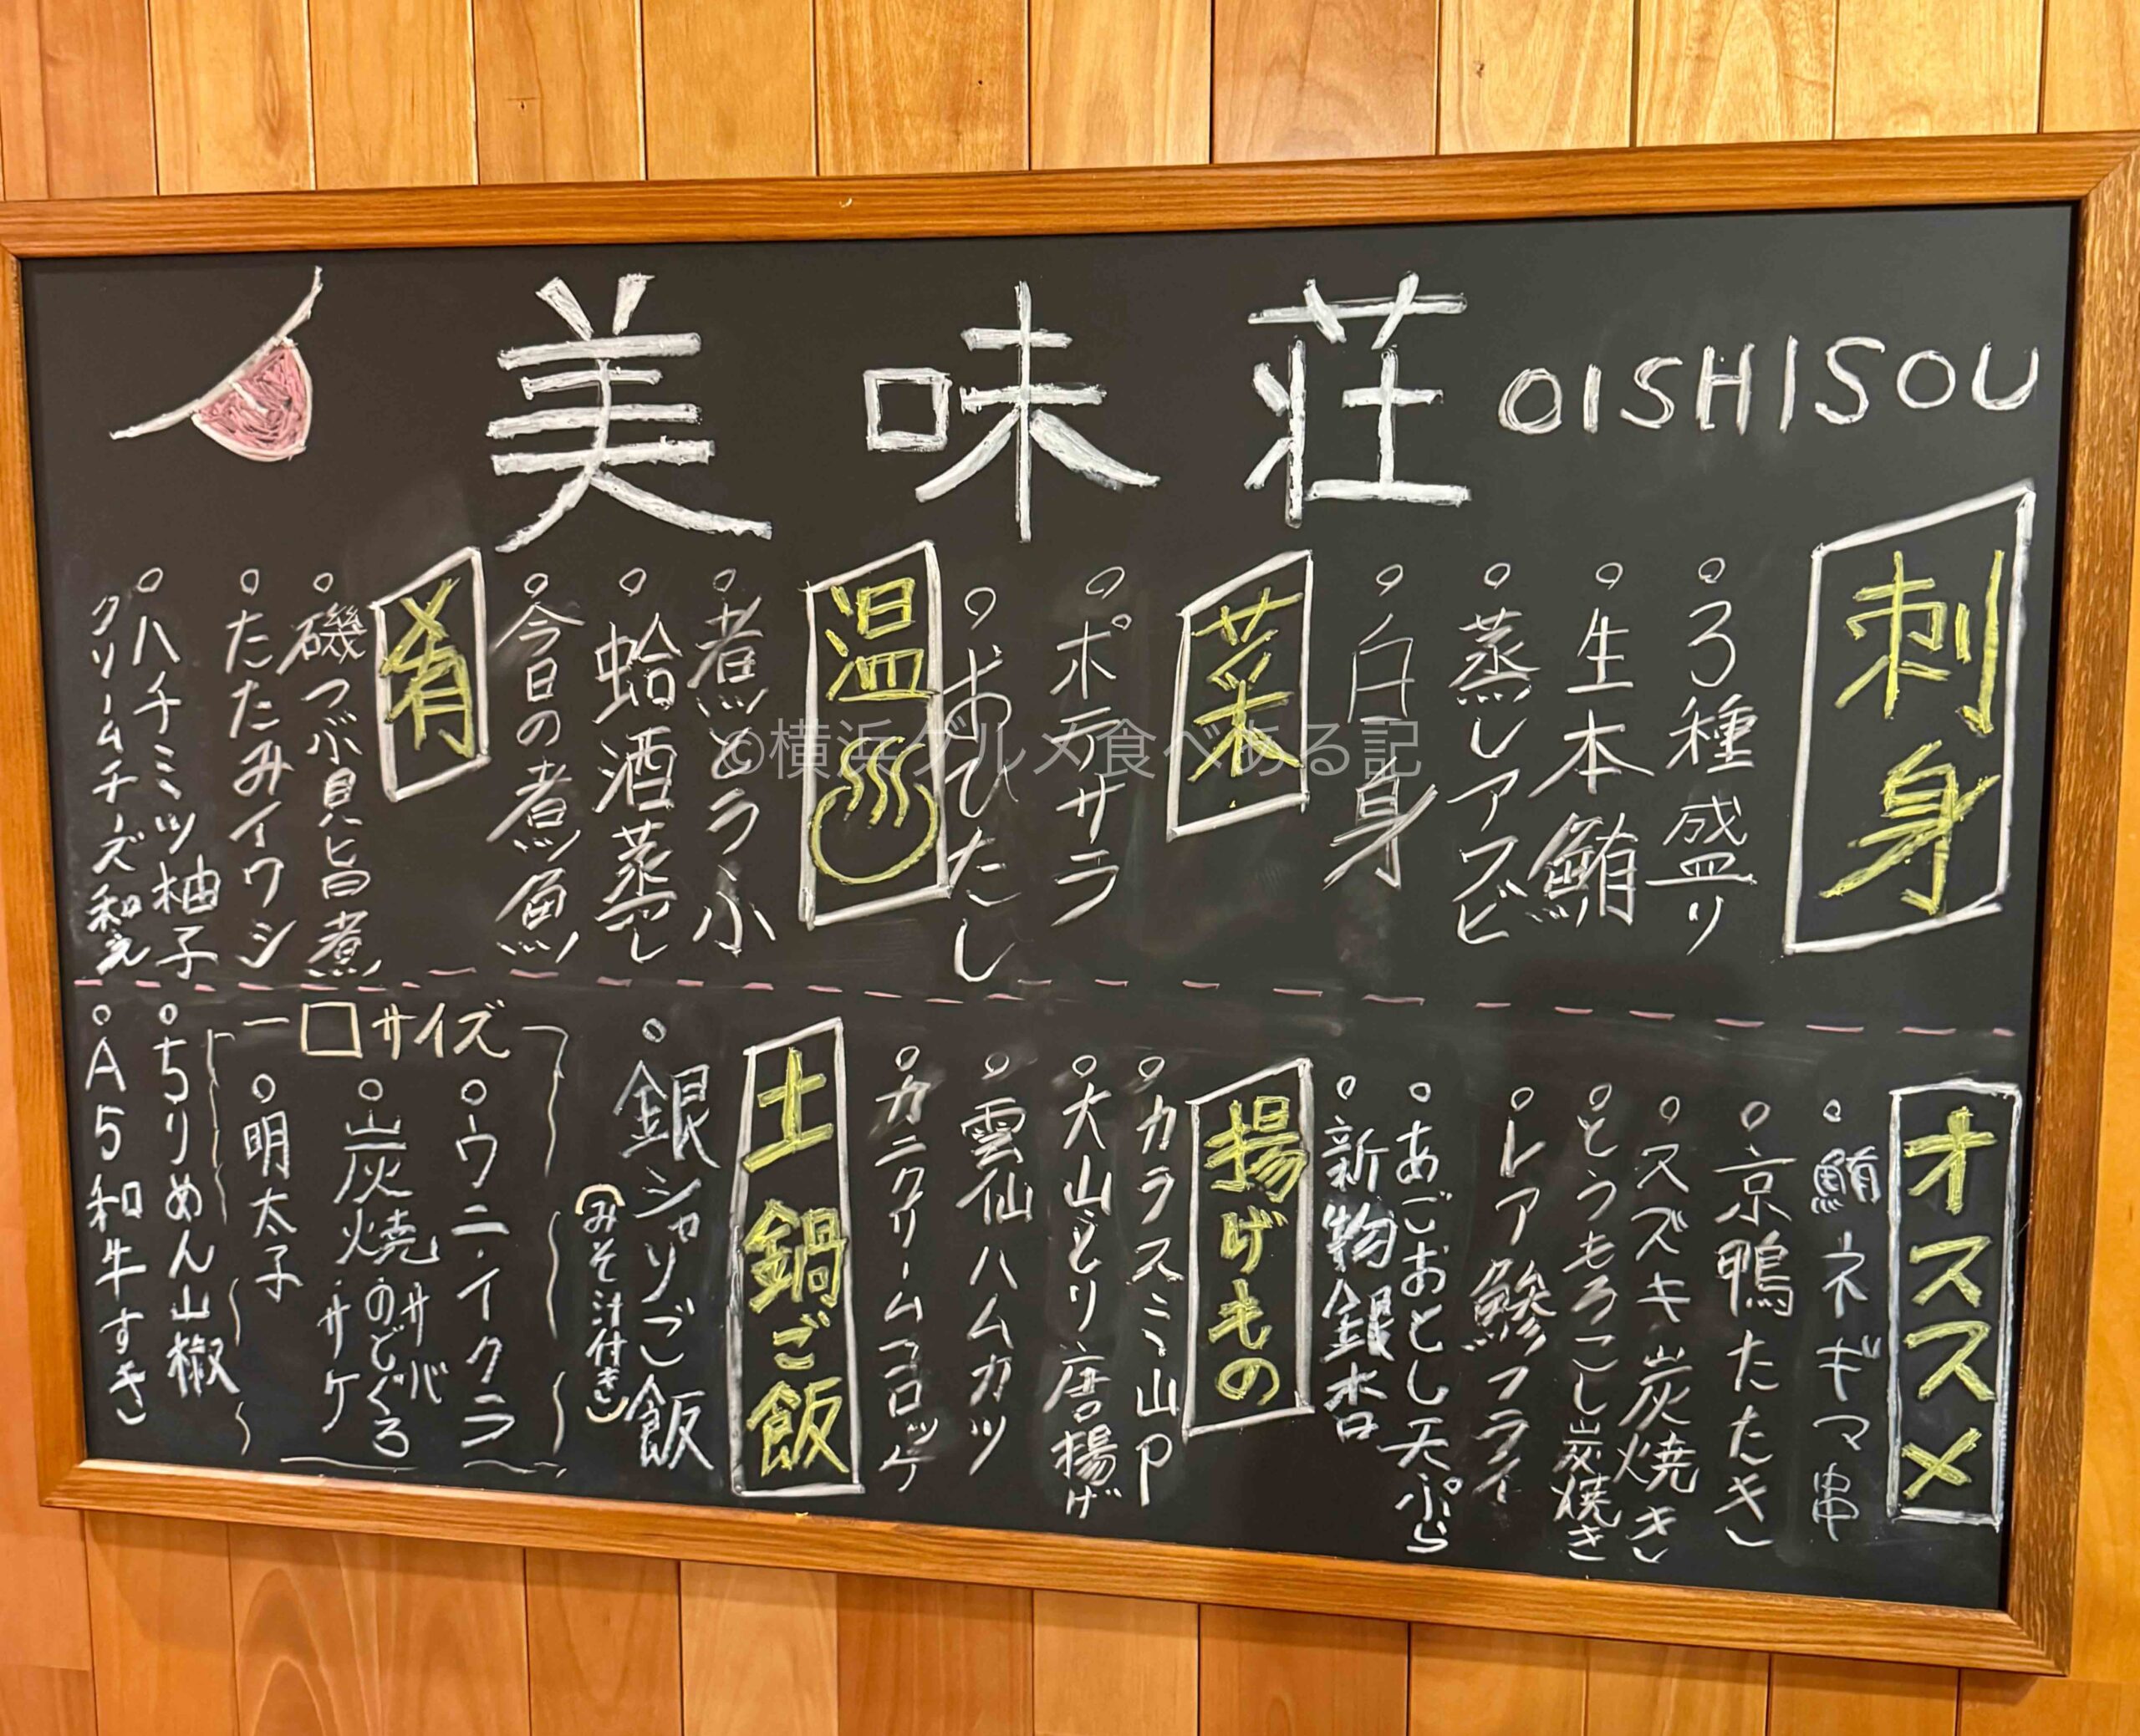 美味荘 OISHISOU
刺身
○3種盛り
○生本鮪
○蒸しアワビ
○白身
菜
○ポテサラ
○おひたし
温♨
○煮とうふ
○蛤酒蒸し
○今日の煮魚
肴
○磯つぶ貝旨煮
○たたみイワシ
○ハチミツ柚子
クリームチーズ和え
オススメ
○鮪ネギマ串
○京鴨たたき
○スズキ炭焼き
○とうもろこし炭焼き
○レア鯵フライ
○あごおとし天ぷら
○新物銀杏
揚げもの
○カラスミ山P
○大山どり唐揚げ
○雲仙ハムカツ
○カニクリームコロッケ
土鍋ご飯
○銀シャリご飯
(みそ汁付き)
一口サイズ
○ウニ・イクラ
○炭焼のどぐろ
・サバ
・サケ
○明太子
○ちりめん山椒
○A5和牛すき
©横浜グルメ食べある記